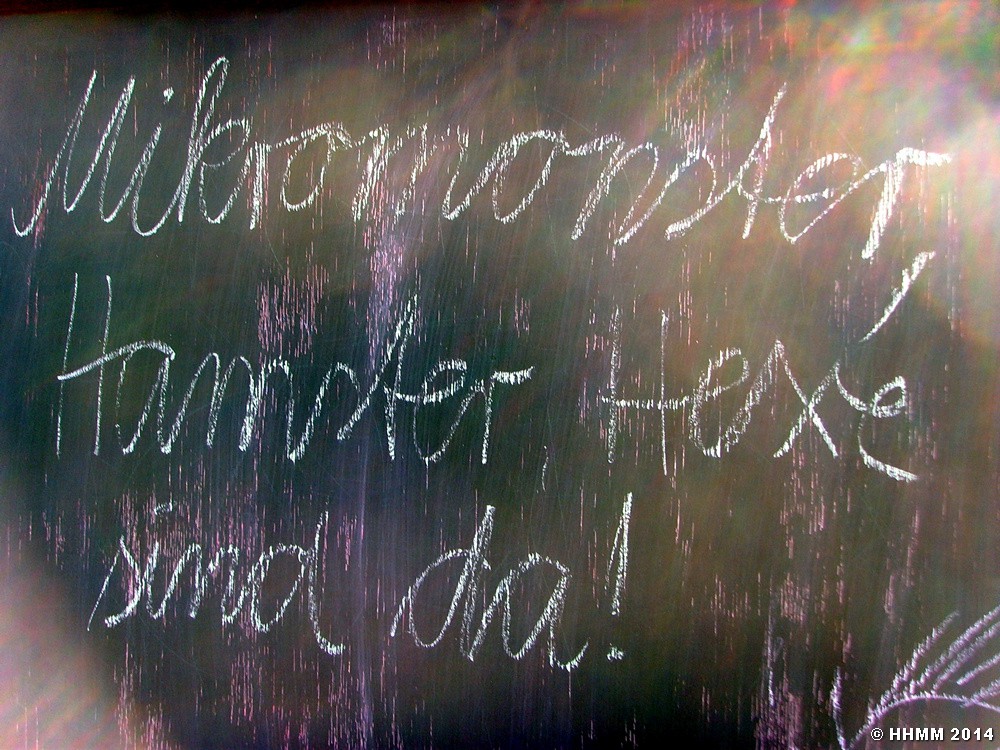 Mikromonster,
Hamster, Hexe
sind da!
© HHMM 2014